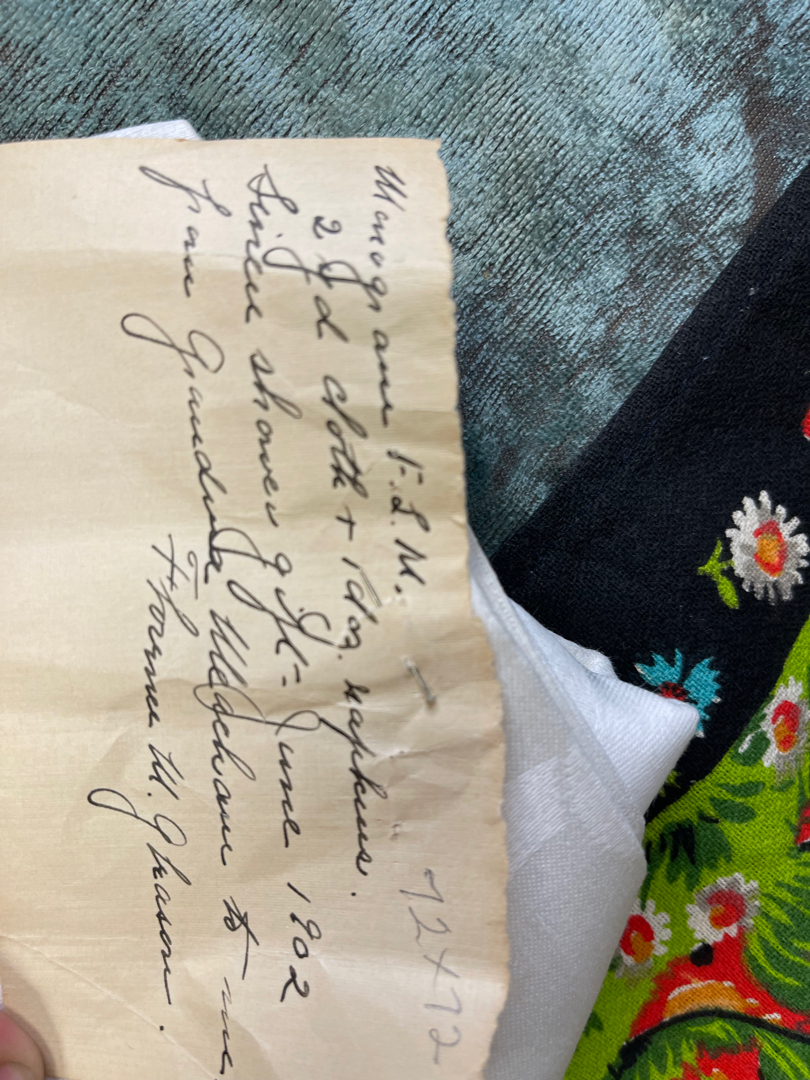 Monogram F.L.M. 72x72
2 yd cloth + 1 doz. napkins.
Linen shower gift - June 1902
from Grandma to me.
Florence M.